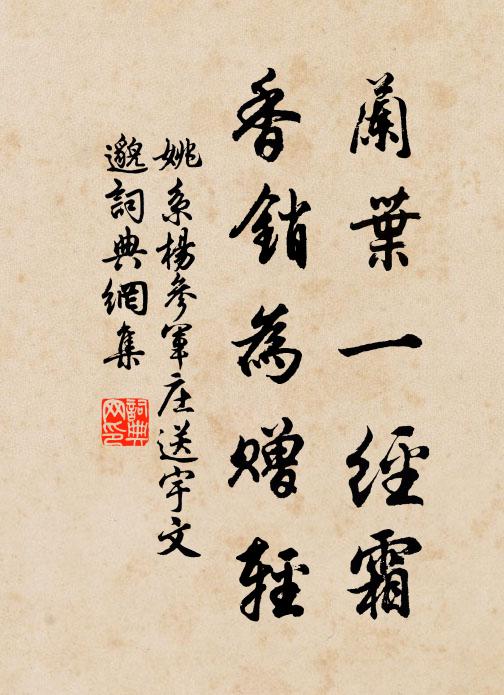 蘭葉一經霜
香銷為贈輕
姚系楊參軍庄送宇文
邈詞典網集
詞典
网印